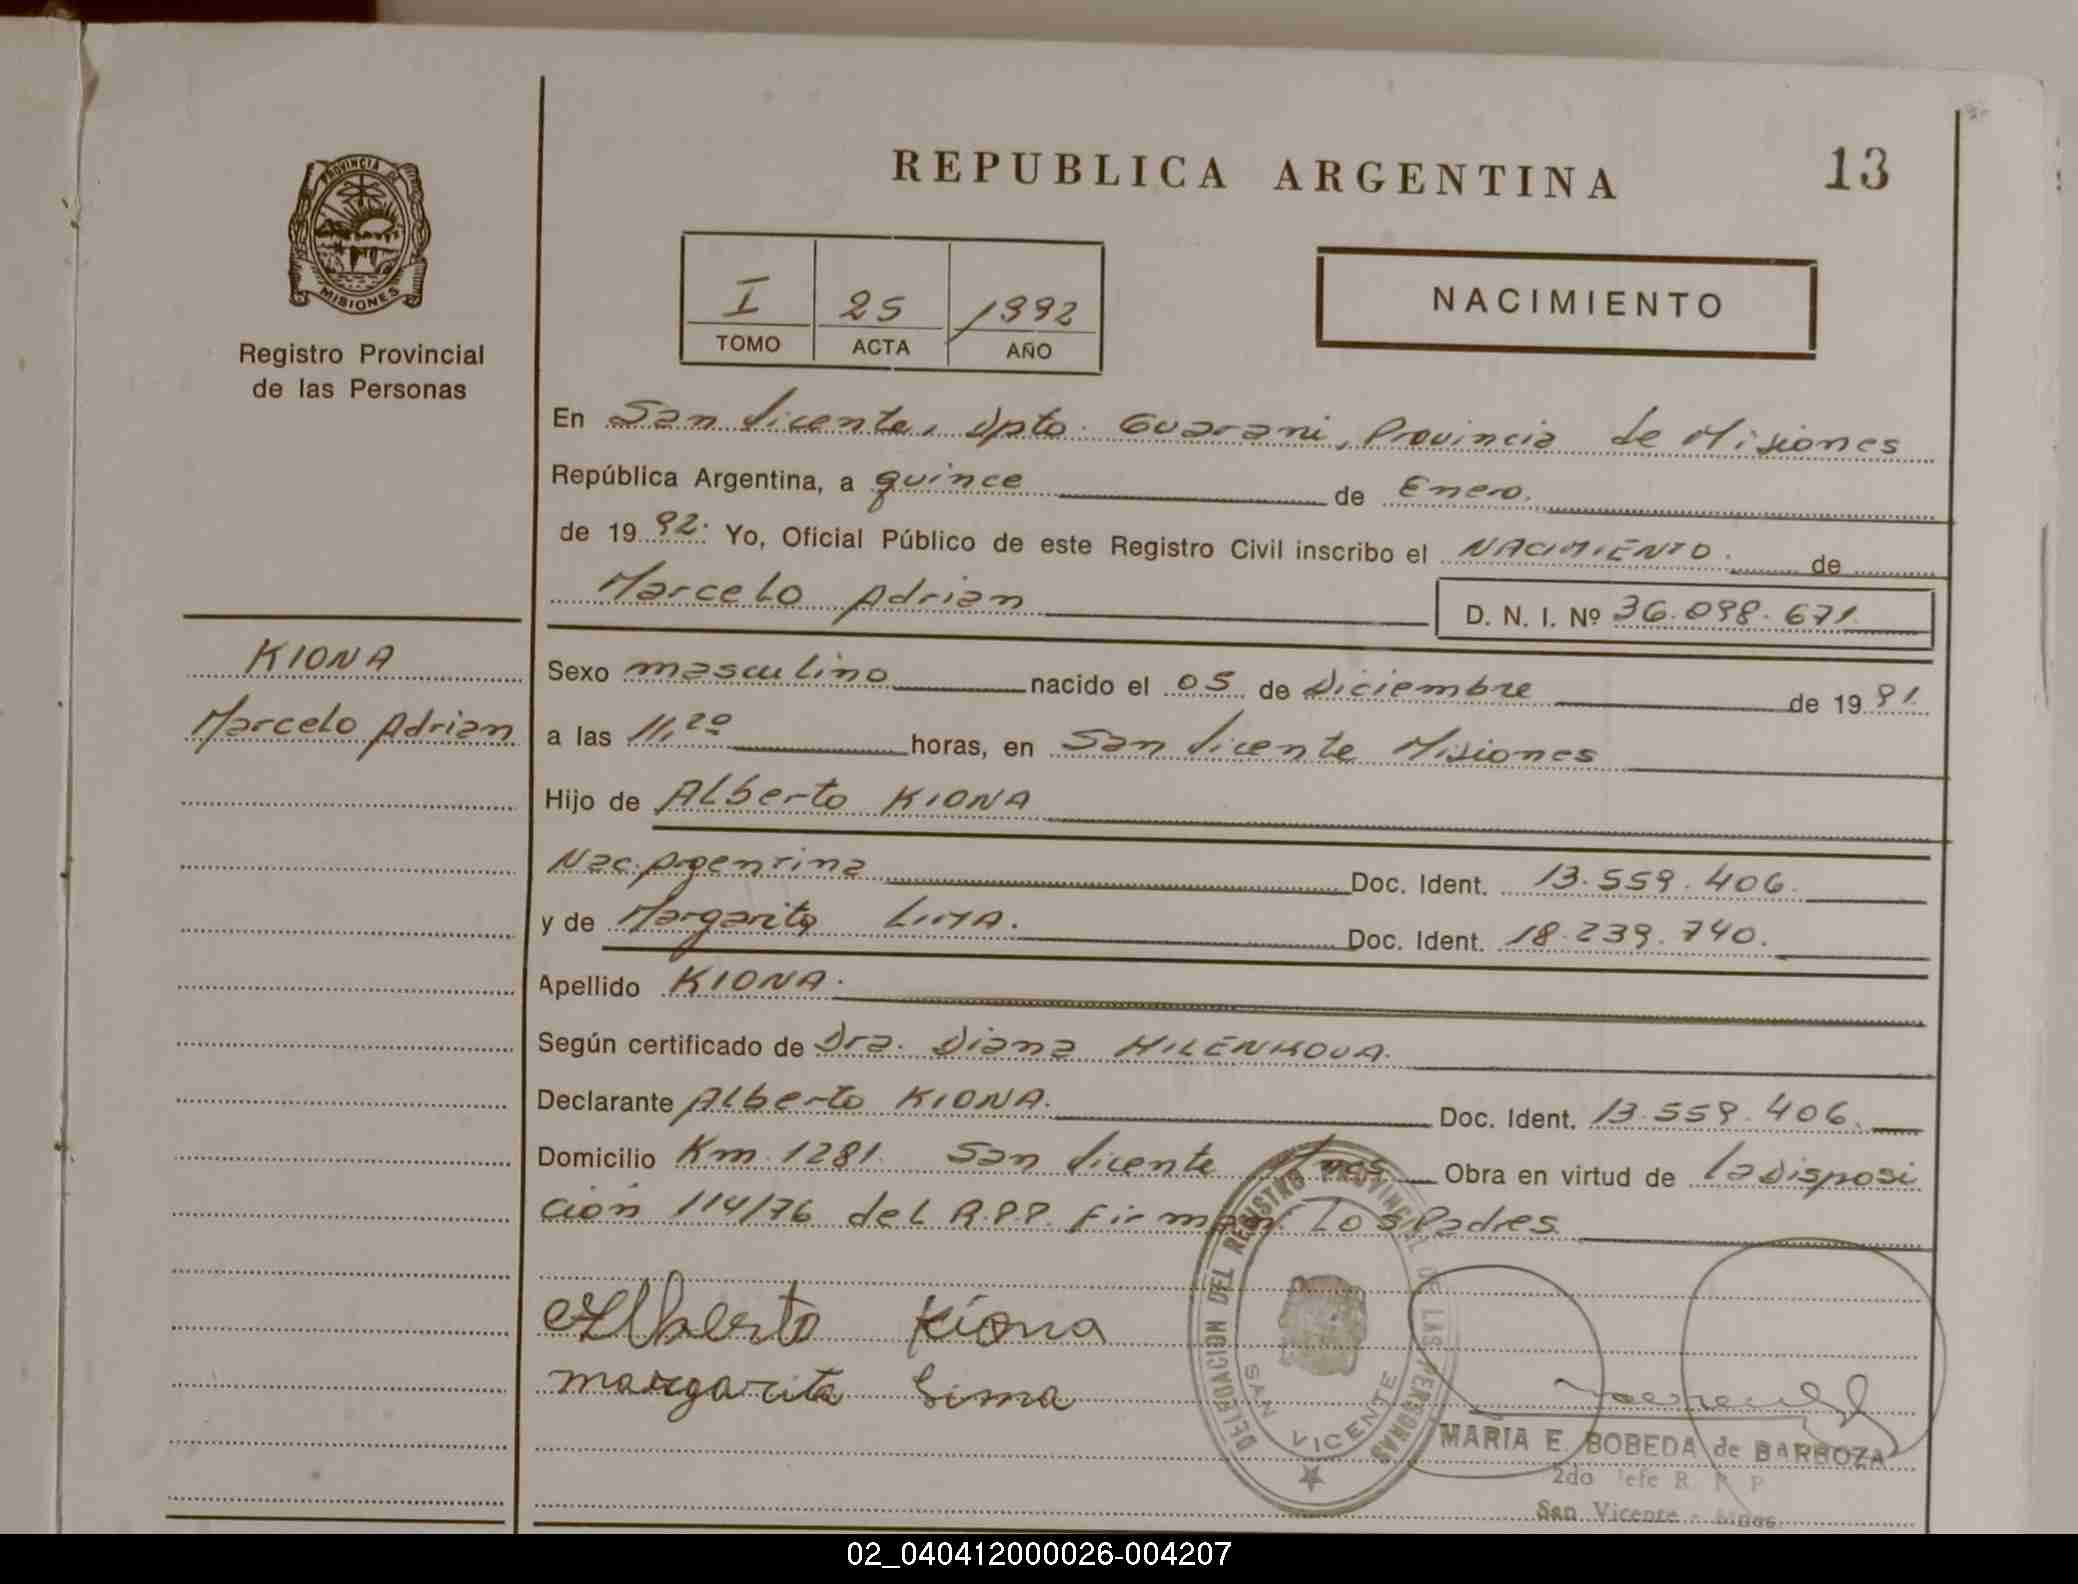 REPUBLICA ARGENTINA
13
PROVINCIA DE
MISIONES
Registro Provincial
de las Personas
I 25 1992
TOMO ACTA AÑO
NACIMIENTO
En San Vicente, Dpto. Guarani, Provincia de Misiones
República Argentina, a quince de Enero.
de 1992. Yo, Oficial Público de este Registro Civil inscribo el NACIMIENTO. de
Marcelo Adrian
D. N. I. Nº 36.098.671
KIONA
Marcelo Adrian
Sexo masculino nacido el 05 de Diciembre de 1991.
a las 11,20 horas, en San Vicente Misiones
Hijo de Alberto KIONA
Nac. Argentina Doc. Ident. 13.559.406.
y de Margarita LIMA. Doc. Ident. 18.239.740.
Apellido KIONA.
Según certificado de Dra. Diana MILENKOVA.
Declarante Alberto KIONA. Doc. Ident. 13.559.406.
Domicilio Km 1281. San Vicente Mnes Obra en virtud de la Disposi
ción 114/76 del R.P.P. Firman Los Padres
Alberto Kiona
margarita Lima
DELEGACION DEL REGISTRO PROVINCIAL DE LAS PERSONAS
SAN VICENTE
MARIA E. BOBEDA de BARBOZA
2do Jefe R. P. P
San Vicente - Mnes.
02_040412000026-004207